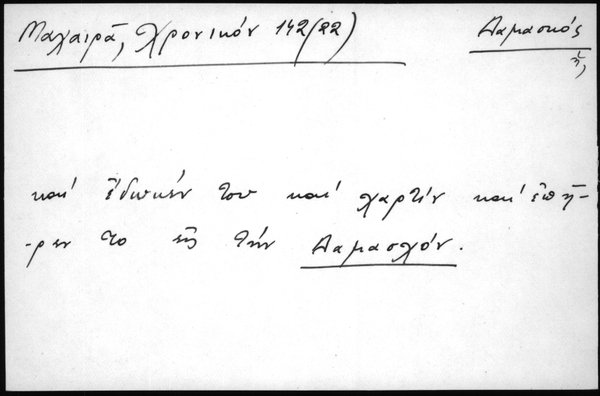 Μαχαιρᾶ, Χρονικόν 142(22)
Δαμασκός
ἡ,
καὶ ἔδωκέν του καὶ χαρτὶν καὶ ἐπῆ-
-ρεν το εἰς τὴν Δαμασχόν.